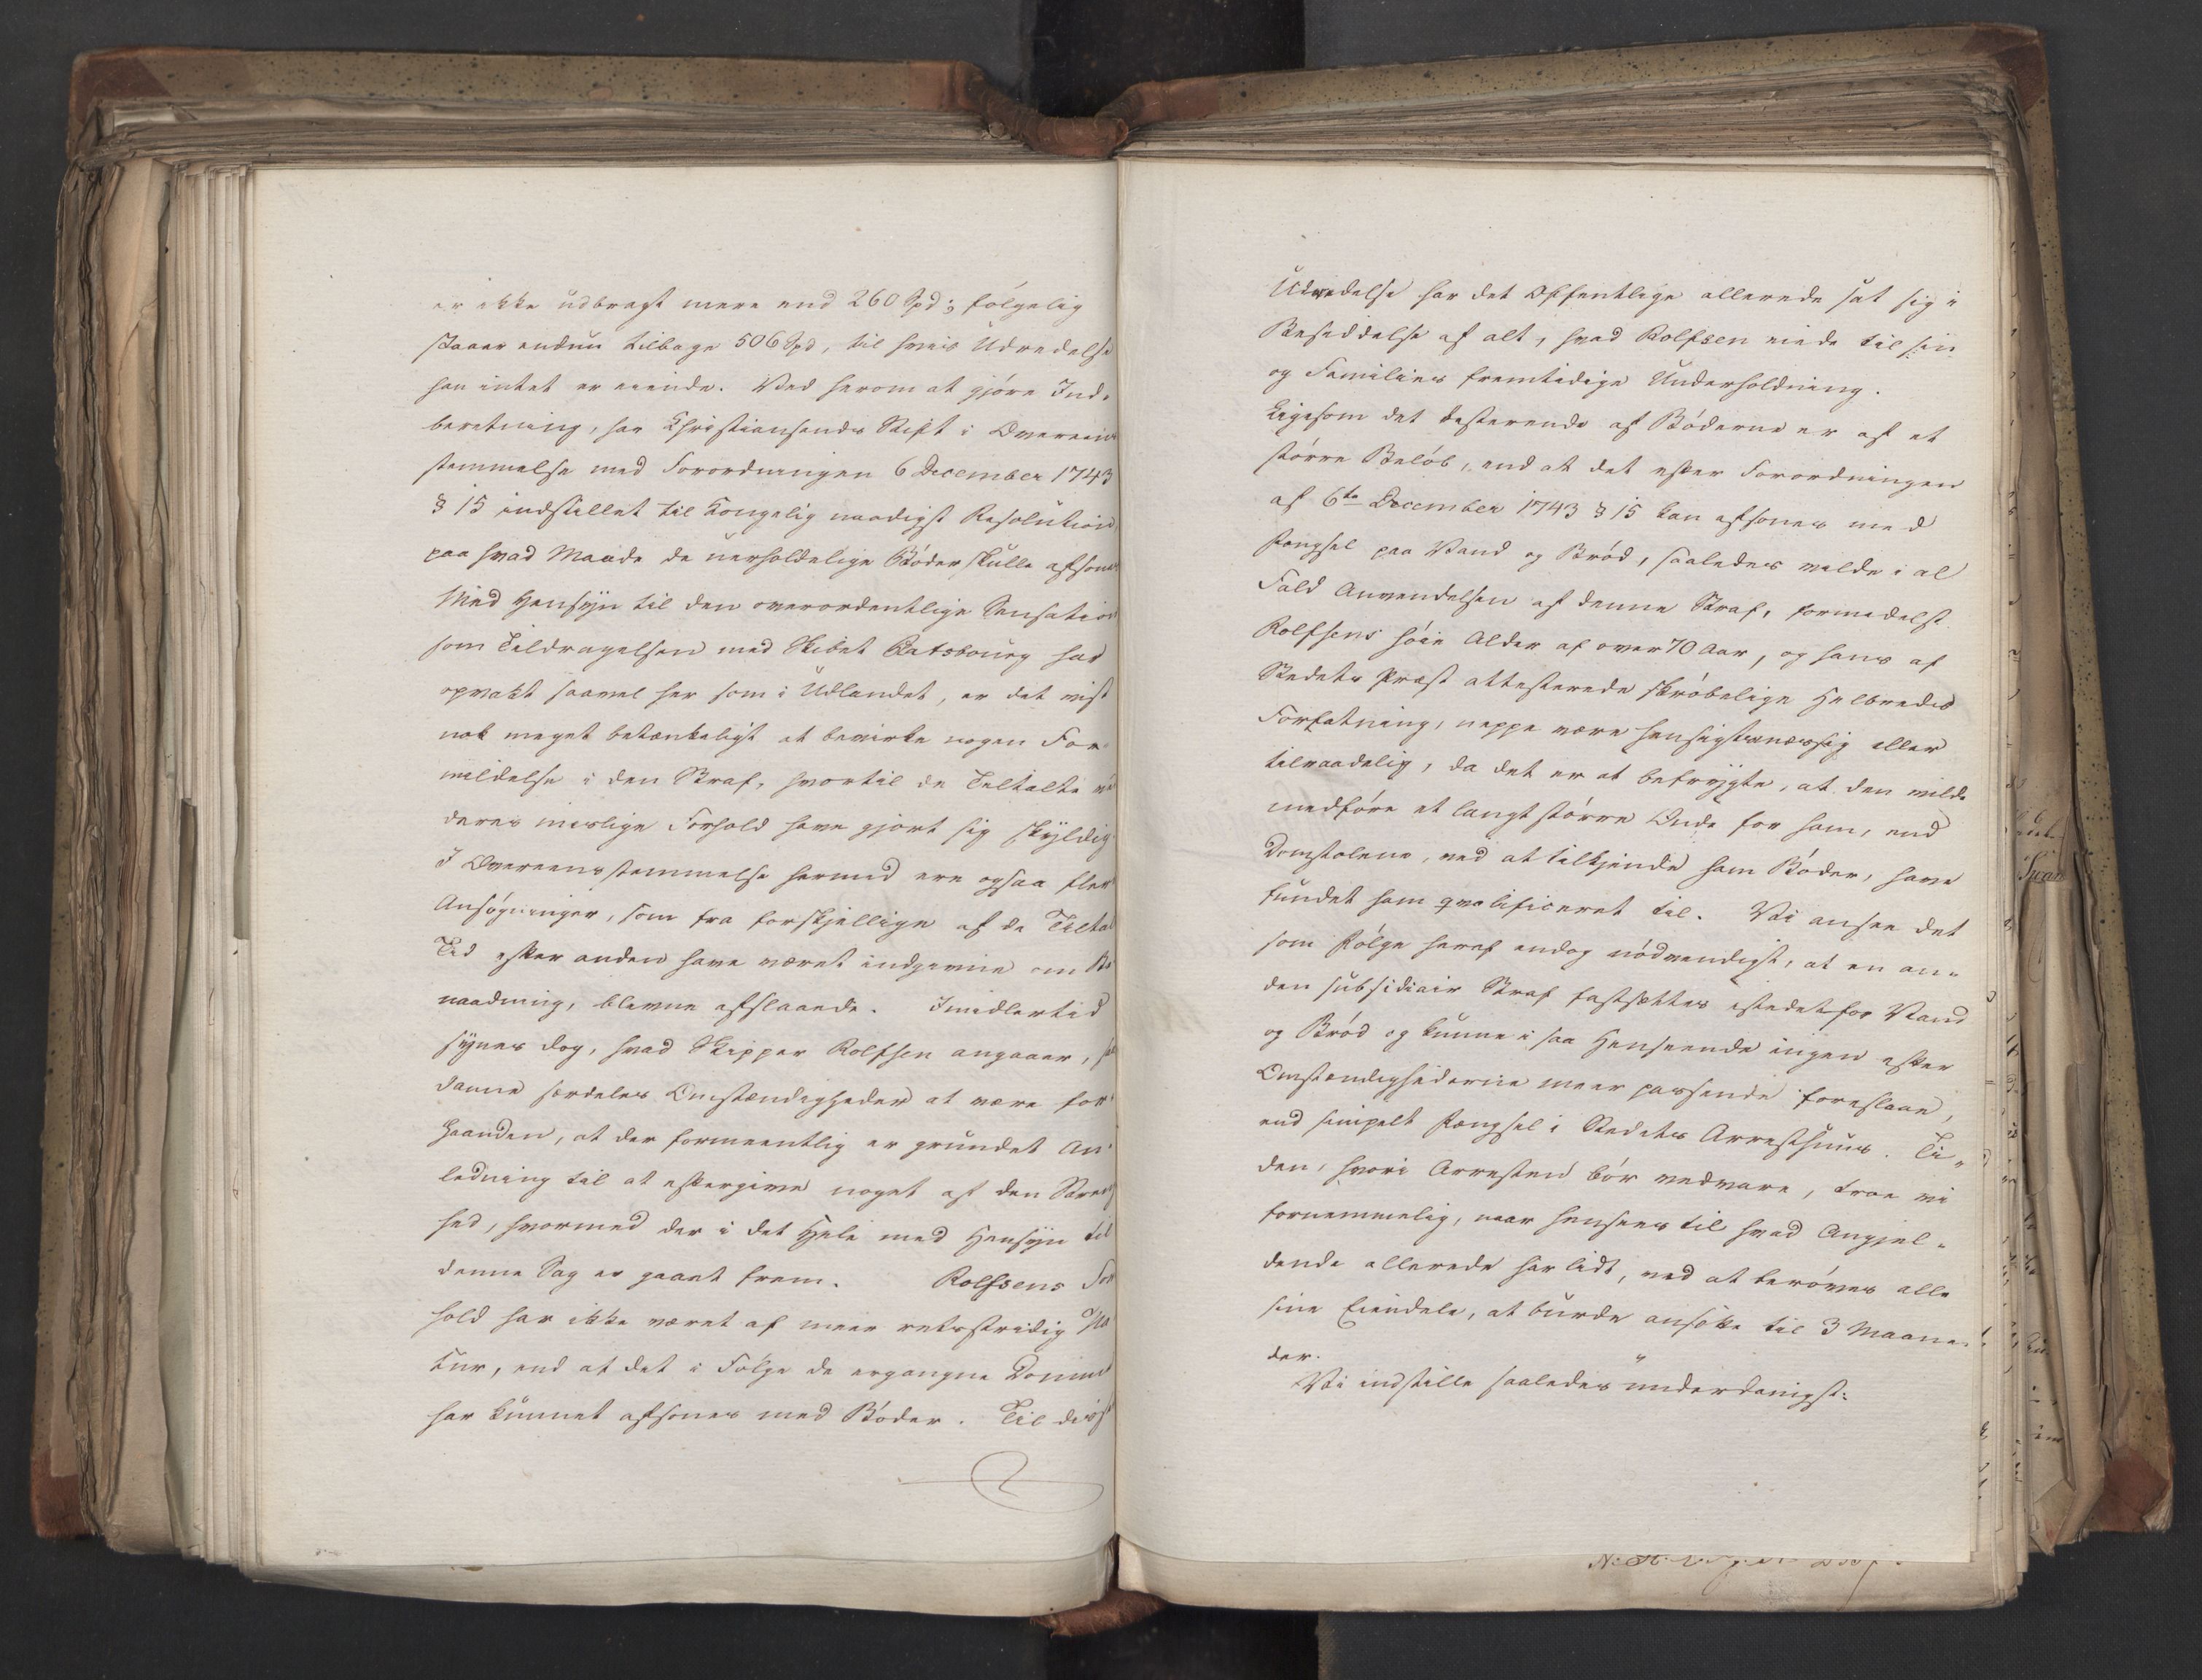 er ikke udbragt mere end 260 Spd; følgelig
staaer endnu tilbage 506 Spd, til hvis Udredelse
han intet er eiende. Ved herom at gjøre Ind-
beretning, har Christiansands Stift i Overeens
stemmelse med Forordningen 6 December 1743
§ 15 indstillet til Kongelig naadigst Resolution,
paa hvad Maade de uerholdelige Bøder skulle afsones
Med Hensyn til den overordentlige Sensation
som Tildragelsen med Skibet Catsbourg har
opvakt saavel her som i Udlandet, er det vist
nok meget betænkeligt at bevirke nogen For-
mildelse i den Straf, hvortil de Tiltalte ved
deres uærlige Forhold have gjort sig skyldig
I Overeensstemmelse hermed ere ogsaa flere
Ansøgninger, som fra forskjellige af de Tiltal
Tid efter anden have været indgivne om Be
naadning, blevne afslaaede. Imidlertid
synes dog, hvad Skipper Rolfsen angaaer, saa
danne særdeles Omstændigheder at være for
Haanden, at der formeentlig er grundet An-
ledning til at eftergive noget af den Streng
hed, hvormed der i det Hele med Hensyn til
denne Sag er gaaet frem. Rolfsens For
hold har ikke været af meer retsstridig Na
tur, end at det i Følge de ergangne Domme
har kunnet afsones med Bøder. Til diss
Udredelse har det Offentlige allerede sat sig i
Besiddelse af alt, hvad Rolfsen eiede til sin
og Families fremtidige Underholdning.
Ligesom det resterende af Bøderne er af et
større Beløb, end at det efter Forordningen
af 6te December 1743 § 15 kan afsones med
Fængsel paa Vand og Brød, saaledes vilde i al
Fald Anvendelsen af denne Straf, formedelst
Rolfsens høie Alder af over 70 Aar, og hans af
Stedets Præst attesterede skrøbelige Helbreds
Forfatning, neppe være hensigtsmæssig eller
tilraadelig, da det er at befrygte, at den vilde
medføre et langt større Onde for ham, end
Domstolene, ved at tilkjende ham Bøder, have
fundet ham qvalificeret til. Vi ansee det
som Følge heraf endog nødvendigt, at en an-
den subsidiair Straf fastsættes istedetfor Vand
og Brød og kunne i saa Henseende ingen efter
Omstændighederne meer passende foreslaae,
end simpelt Fængsel i Stedets Arresthuus. Ti-
den, hvori Arresten bør vedvare, troe vi
fornemmelig, naar hensees til hvad Angjel-
dende allerede har lidt, ved at berøves alle
sine Eiendele, at burde ansætte til 3 Maane-
der.
Vi indstille saaledes underdanigst: